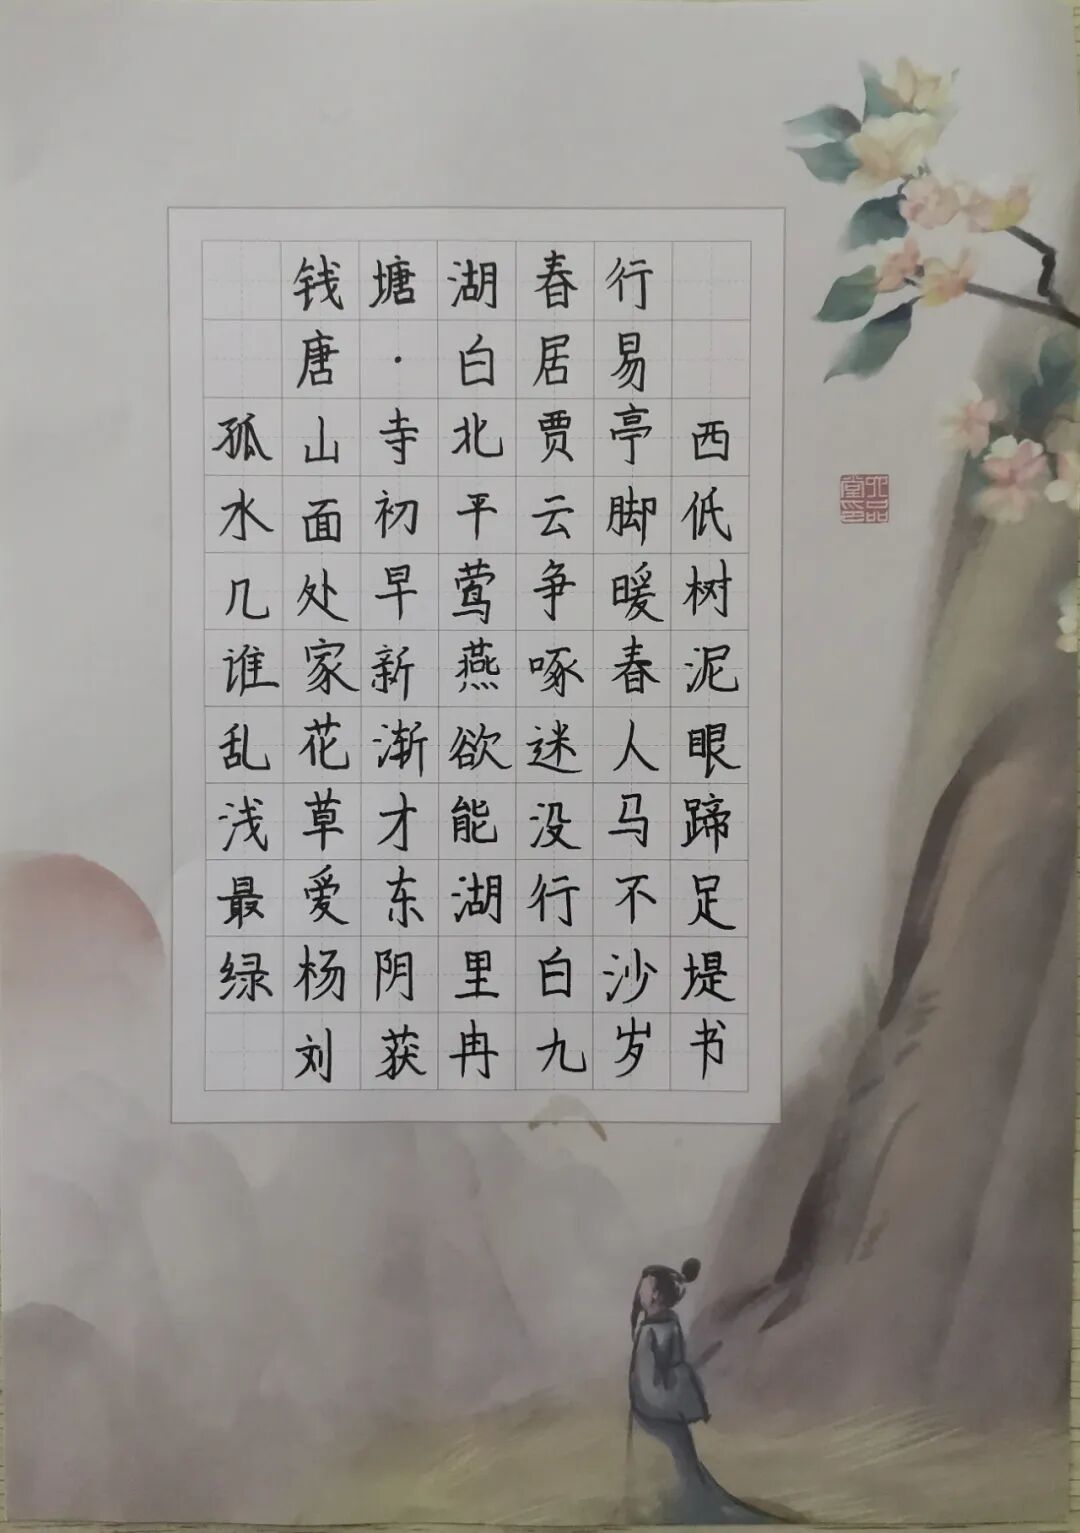 钱塘湖春行
唐·白居易
孤山寺北贾亭西
水面初平云脚低
几处早莺争暖树
谁家新燕啄春泥
乱花渐欲迷人眼
浅草才能没马蹄
最爱东湖行不足
绿杨阴里白沙堤
刘获冉九岁书